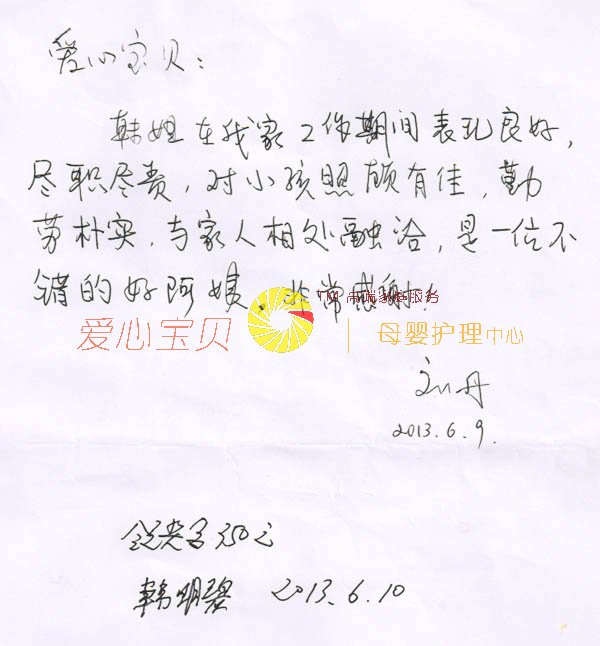 爱心宝贝：
韩姐在我家工作期间表现良好，
尽职尽责，对小孩照顾有佳，勤
劳朴实，与家人相处融洽，是一位不
错的好阿姨。非常感谢！
高端家庭服务
爱心宝贝 | 母婴护理中心
刘丹
2013.6.9.
350元
韩明碧 2013.6.10